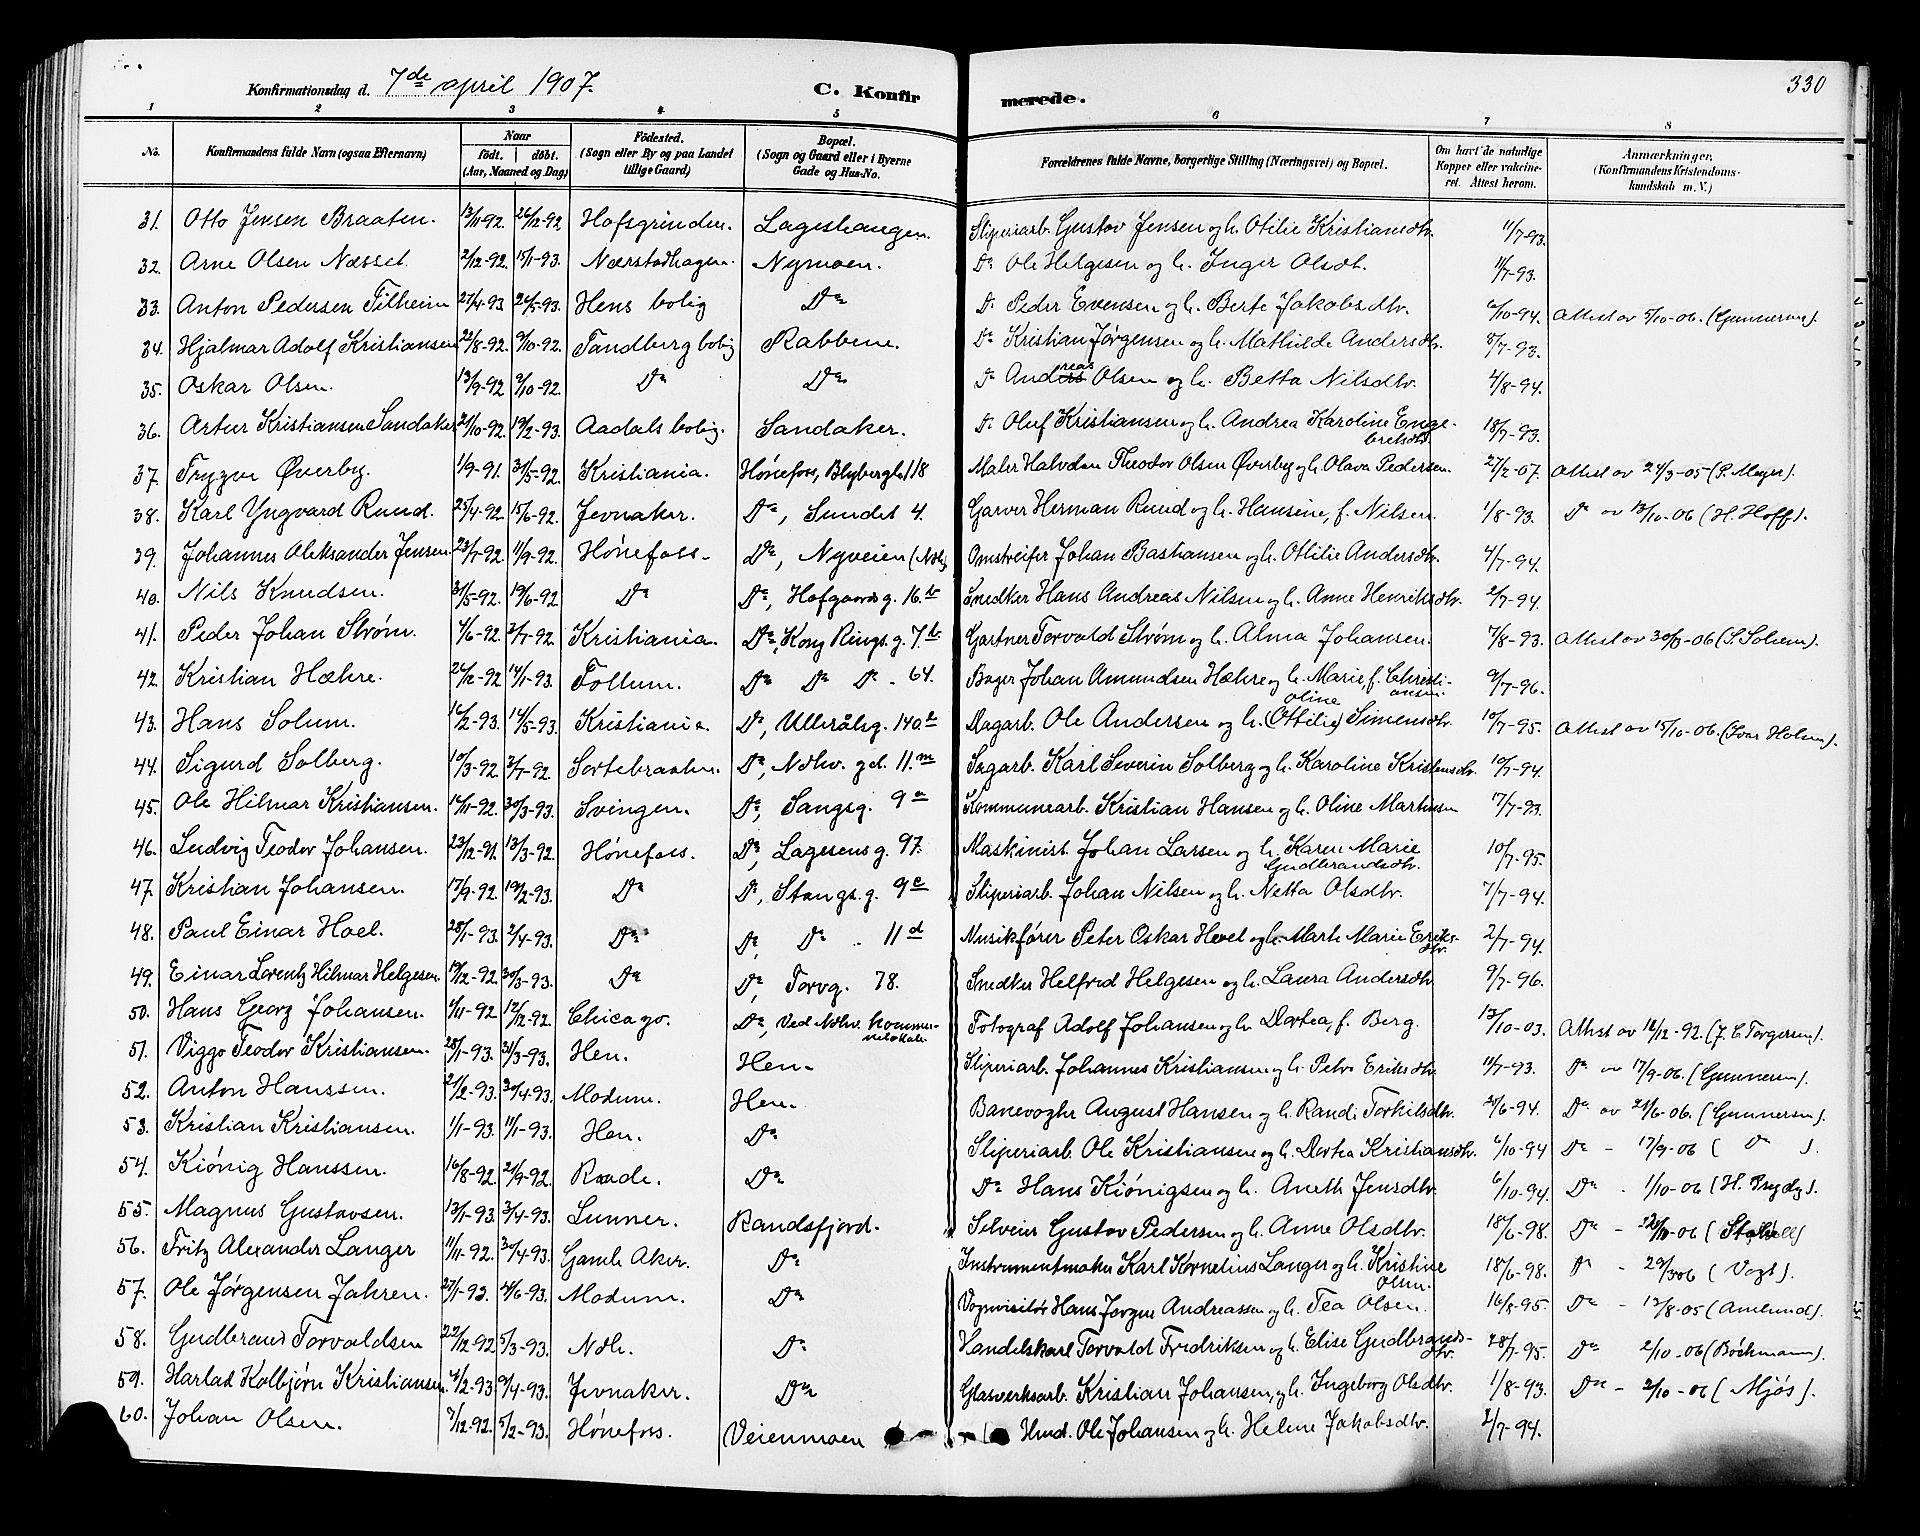 330
Konfirmationsdag d. 7de april 1907. C. Konfirmerede.
1 2 3 4 5 6 7 8
No. Konfirmandens fulde Navn (ogsaa Efternavn) Naar födt. döbt. (Aar, Maaned og Dag) Födested. (Sogn eller By og paa Landet tillige Gaard) Bopæl. (Sogn og Gaard eller i Byerne Gade og Hus-No. Forældrenes fulde Navne, borgerlige Stilling (Næringsvei) og Bopæl. Om havt de naturlige Kopper eller vakcineret. Attest herom. Anmærkninger. (Konfirmandens Kristendomskundskab m. V.)
31. Otto Jensen Braaten. 13/11-92. 26/12-92 Hofsgrinden. Lageshaugen. Sliperiarb. Gustav Jensen og h. Otilie Kristiansdtr. 11/7-93.
32. Arne Olsen Næsset. 2/12-92. 15/1-93. Nærstadhagen. Nymoen. Do Ole Helgesen og h. Inger Olsdt. 11/7-93.
33. Anton Pedersen Filheim 27/4-93 24/5-93. Hens bolig Do D. Peder Evensen og h. Berte Jakobsdtr. 6/10-94. Attest av 5/10-06. (Gunnersen).
34. Hjalmar Adolf Kristiansen 22/8-92. 9/10-92. Tandberg bolig Rabbene. Do Kristian Jørgensen og h. Mathilde Andersdtr. 5/7-93.
35. Oskar Olsen. 13/9-92 9/10-92. Do Do Do Andreas Olsen og h. Betta Nilsdtr. 4/8-94.
36. Artur Kristiansen Sandaker 21/10-92. 19/2-93. Aadals bolig. Sandaker. Do Oluf Kristiansen og h. Andrea Karoline Engebretsdtr. 18/7-93.
37. Trygve Øverby. 1/9-91. 31/5-92. Kristiania. Hønefos, Blybergld. 118 Maler Halvdan Theodor Olsen Øverby og h. Olava Pedersen. 27/2-07. Attest av 24/3-05 (P. Meyer).
38. Karl Yngvard Ruud. 25/4-92. 15/6-92. Jevnaker. Do, Sundet 4. Garver Herman Ruud og h. Hansine, f. Nilsen. 1/8-93. Do av 13/10-06 (H. Hoff).
39. Johannes Aleksander Jensen 23/7-92. 11/9-92. Hønefoss. Do, Nyveien (Ndh) Omstreifer Johan Bastiansen og h. Ottilie Andersdtr. 4/7-94.
40. Nils Knudsen. 31/5-92. 19/6-92. Do Do, Hofgaards g. 16.b Snedker Hans Andreas Nilsen og h. Anne Henriksdtr. 2/7-94.
41. Peder Johan Strøm. 4/6-92. 3/7-92. Kristiania. Do, Kong Rings. g. 7.b Gartner Torvald Strøm og h. Alma Johansen. 7/8-93. Attest av 30/3-06 (S. Solheim).
42. Kristian Hæhre. 24/12-92 14/1-93. Follum. Do Do Do - 64. Bager Johan Amundsen Hæhre og h. Marie, f. Christiansen. 9/7-96.
43. Hans Solum. 16/2-93. 14/5-93. Kristiania. Do, Ullerålsg. 140.b Dagarb. Ole Andersen og h. (Ottilie) Oline Simensdtr. 10/7-95. Attest av 15/10-06. (Ivar Holsen).
44. Sigurd Solberg. 10/3-92. 3/7-92. Sortebraaten. Do, Ndhv. gd. 11.m Sagarb. Karl Severin Solberg og h. Karoline Kristensdtr. 10/7-94.
45. Ole Hilmar Kristiansen. 14/11-92. 30/3-93. Svingen. Do, Sangsg. 9a Kommunearb. Kristian Hansen og h. Oline Martinsen 17/7-93.
46. Ludvig Teodor Johansen. 23/12-91. 13/3-92. Hønefoss. Do, Lagesens g. 97. Maskinist. Johan Larsen og h. Karen Marie Gudbrandsdtr. 10/7-95.
47. Kristian Johansen. 17/9-92. 19/2-93. Do Do, Stangs. g. 9c Sliperiarb. Johan Nilsen og h. Netta Olsdtr. 7/7-94.
48. Paul Einar Hoel. 28/1-93. 2/4-93. Do Do, Do - 11d Musikfører Peter Oskar Hoel og h. Marte Marie Eriksdtr. 2/7-94.
49. Einar Lorentz Hilmar Helgesen. 19/12-92. 30/3-93. Do Do, Torvg. 78. Snedker Helfred Helgesen og h. Laura Andersdtr. 9/7-96.
50. Hans Georg Johansen. 4/11-92. 12/12-92. Chicago. Do, Ved Ndhv. kommunelokale. Fotograf Adolf Johansen og h. Dortea, f. Berg. 13/10-03. Attest av 16/12-92. (J. C. Torgersen).
51. Viggo Teodor Kristiansen. 28/1-93. 31/3-93. Hen. Hen. Sliperiarb. Johannes Kristiansen og h. Petra Eriksdtr. 11/7-93. Do av 17/9-06. (Gunnersen).
52. Anton Hanssen. 21/2-93. 30/4-93. Modum. Hen. Banevogtr August Hansen og h. Randi Torkilsdtr. 20/6-94. Do av 21/6-06. (Gunnersen).
53. Kristian Kristiansen. 1/1-93. 11/1-93. Hen. Do Sliperiarb. Ole Kristiansen og h. Dortea Kristiansdtr. 6/10-94 Do - 17/9-06 ( Do ).
54. Kiønig Hanssen. 16/8-92. 21/9-92. Raade. Do Do Hans Kiønigsen og h. Aneth Jensdtr. 6/10-94. Do - 1/10-06 (H. Prydz).
55. Magnus Gustavsen. 13/1-93. 3/4-93. Lunner. Randsfjord. Selveier Gustav Pedersen og h. Anne Olsdtr. 18/6-98. Do -
56. Fritz Alexander Langer 11/11-92. 30/4-93. Gamle Aker. Do Instrumentmaker Karl Kornelius Langer og h. Kristine Olsen. 18/6-98. Do - 29/3 06 (Vogt).
57. Ole Jørgensen Jahren. 27/1-93. 4/6-93. Modum. Do Vognvisitør Hans Jørgen Andreassen og h. Tea Olsen. 16/8-95. Do - 13/8-05 (Amlund).
58. Gudbrand Torvaldsen 22/12-92 5/3-93. Ndh. Do Handelskarl Torvald Fredriksen og h. Elise Gudbrandsdtr. 28/7-95. Do 2/10-06 (Bøckmann).
59. Harlad Kolbjørn Kristiansen 4/2-93 9/4-93. Jevnaker. Do Glasverksarb. Kristian Johansen, og h. Ingeborg Olsdtr. 1/8-93. Do - 2/10-06 (Mjøs).
60. Johan Olsen. 3/12-92. 5/2-93. Hønefoss. Veienmoen Hmd. Ole Johansen og h. Helene Jakobsdtr. 2/7-94.